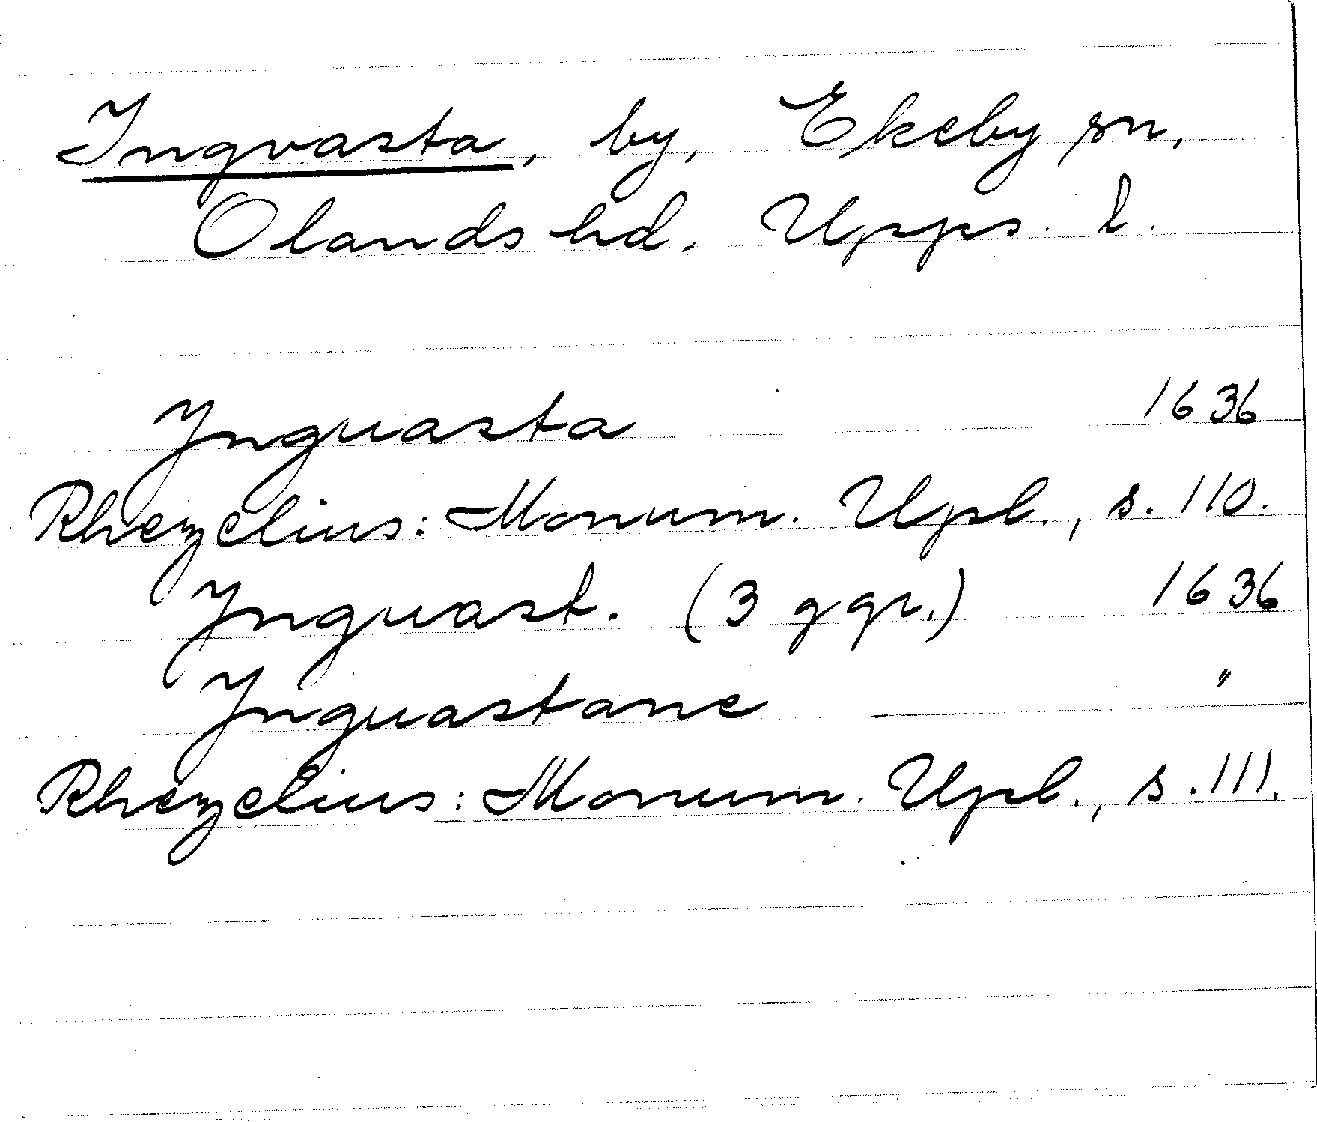 Ingvasta, by, Ekeby sn,
Olands hd. Upps. l.
Ynguasta 1636
Rhezelius: Monum. Upl., s. 110.
Ynguast. (3 ggr.) 1636
Ynguastane "
Rhezelius: Monum. Upl., s. 111.